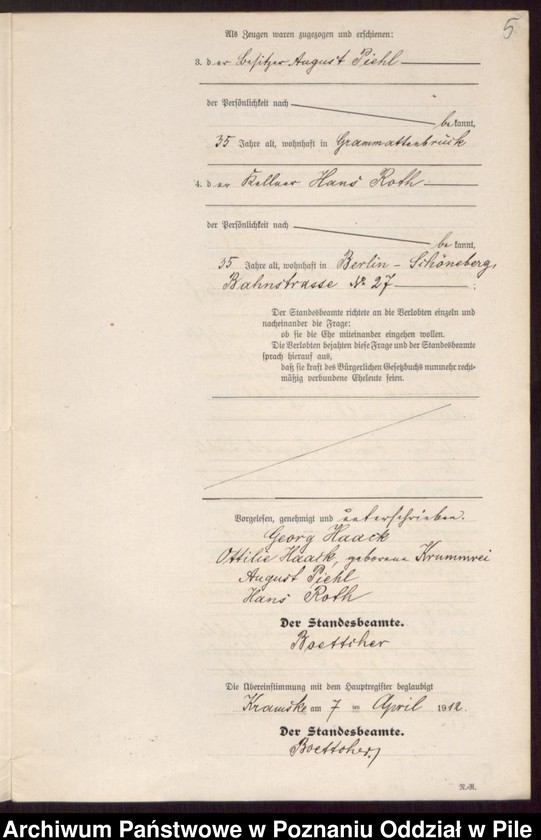 5
Als Zeugen waren zugezogen und erschienen:
3. der Besitzer August Piehl
der Persönlichkeit nach
bekannt,
35 Jahre alt, wohnhaft in Grammattenbrück
4. der Kellner Hans Roth
der Persönlichkeit nach
bekannt,
35 Jahre alt, wohnhaft in Berlin - Schöneberg,
Bahnstrasse No 27
Der Standesbeamte richtete an die Verlobten einzeln und
nacheinander die Frage:
ob sie die Ehe miteinander eingehen wollen.
Die Verlobten bejahten diese Frage und der Standesbeamte
sprach hierauf aus,
daß sie kraft des Bürgerlichen Gesetzbuchs nunmehr recht-
mäßig verbundene Eheleute seien.
Vorgelesen, genehmigt und unterschrieben.
Georg Haack
Ottilie Haack, geborene Krummrei
August Piehl
Hans Roth
Der Standesbeamte.
Boettcher
Die Übereinstimmung mit dem Hauptregister beglaubigt
Kramske am 7 ten April 1912.
Der Standesbeamte.
Boettcher
N.-R.
Archiwum Państwowe w Poznaniu Oddział w Pile